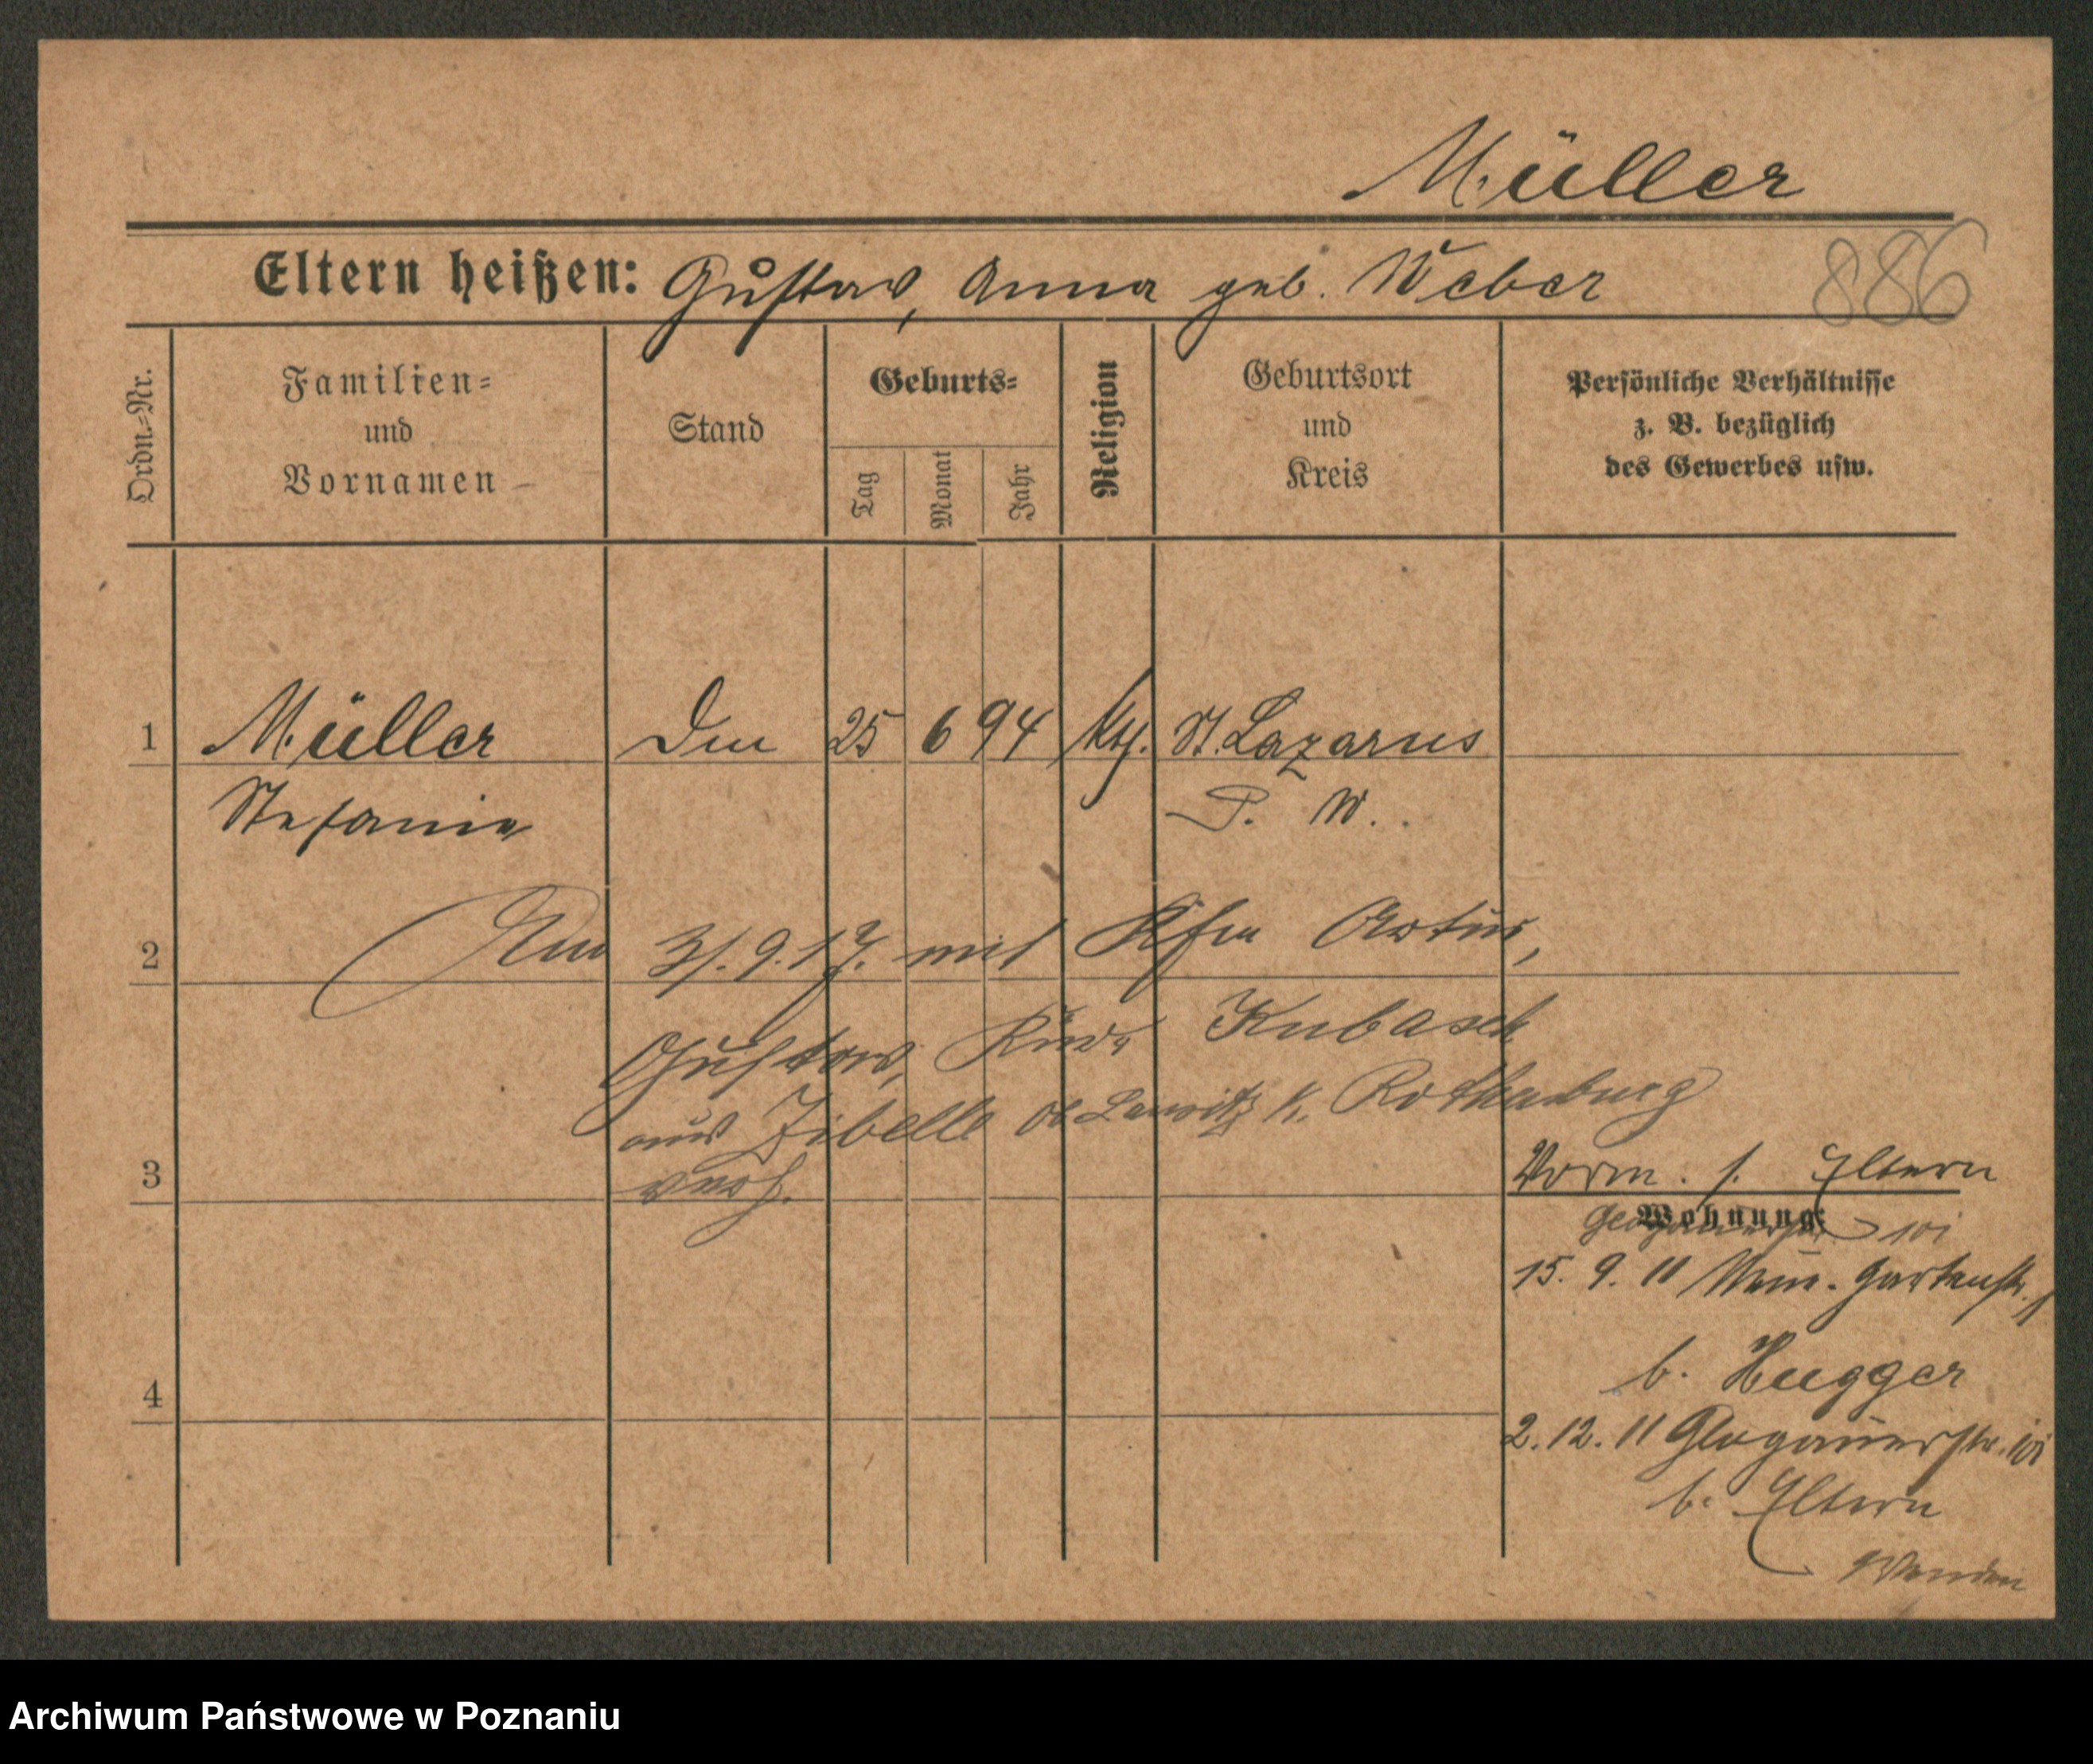 Müller
Eltern heißen: Gustav, Anna geb. Weber
886
Ordn.-Nr.
Familien-
und
Vornamen
Stand
Geburts-
Tag
Monat
Jahr
Religion
Geburtsort
und
Kreis
Persönliche Verhältnisse
z. B. bezüglich
des Gewerbes usw.
1 Müller 25 6 94 St. Lazarus
Stefanie P. W.
2 Am 31. 9. 17. mit Kfm Artur,
Gustav, Kubasch
aus Zibelle Ob Lausitz K. Rothenburg
3 verh.
Vorm. s. Eltern
Wohnung:
Glogauerstr 101
15. 9. 11 Gartenstr. 1
b. Hugger
4
2. 12. 11 Glogauerstr. 101
b. Eltern
Wenden
Archiwum Państwowe w Poznaniu